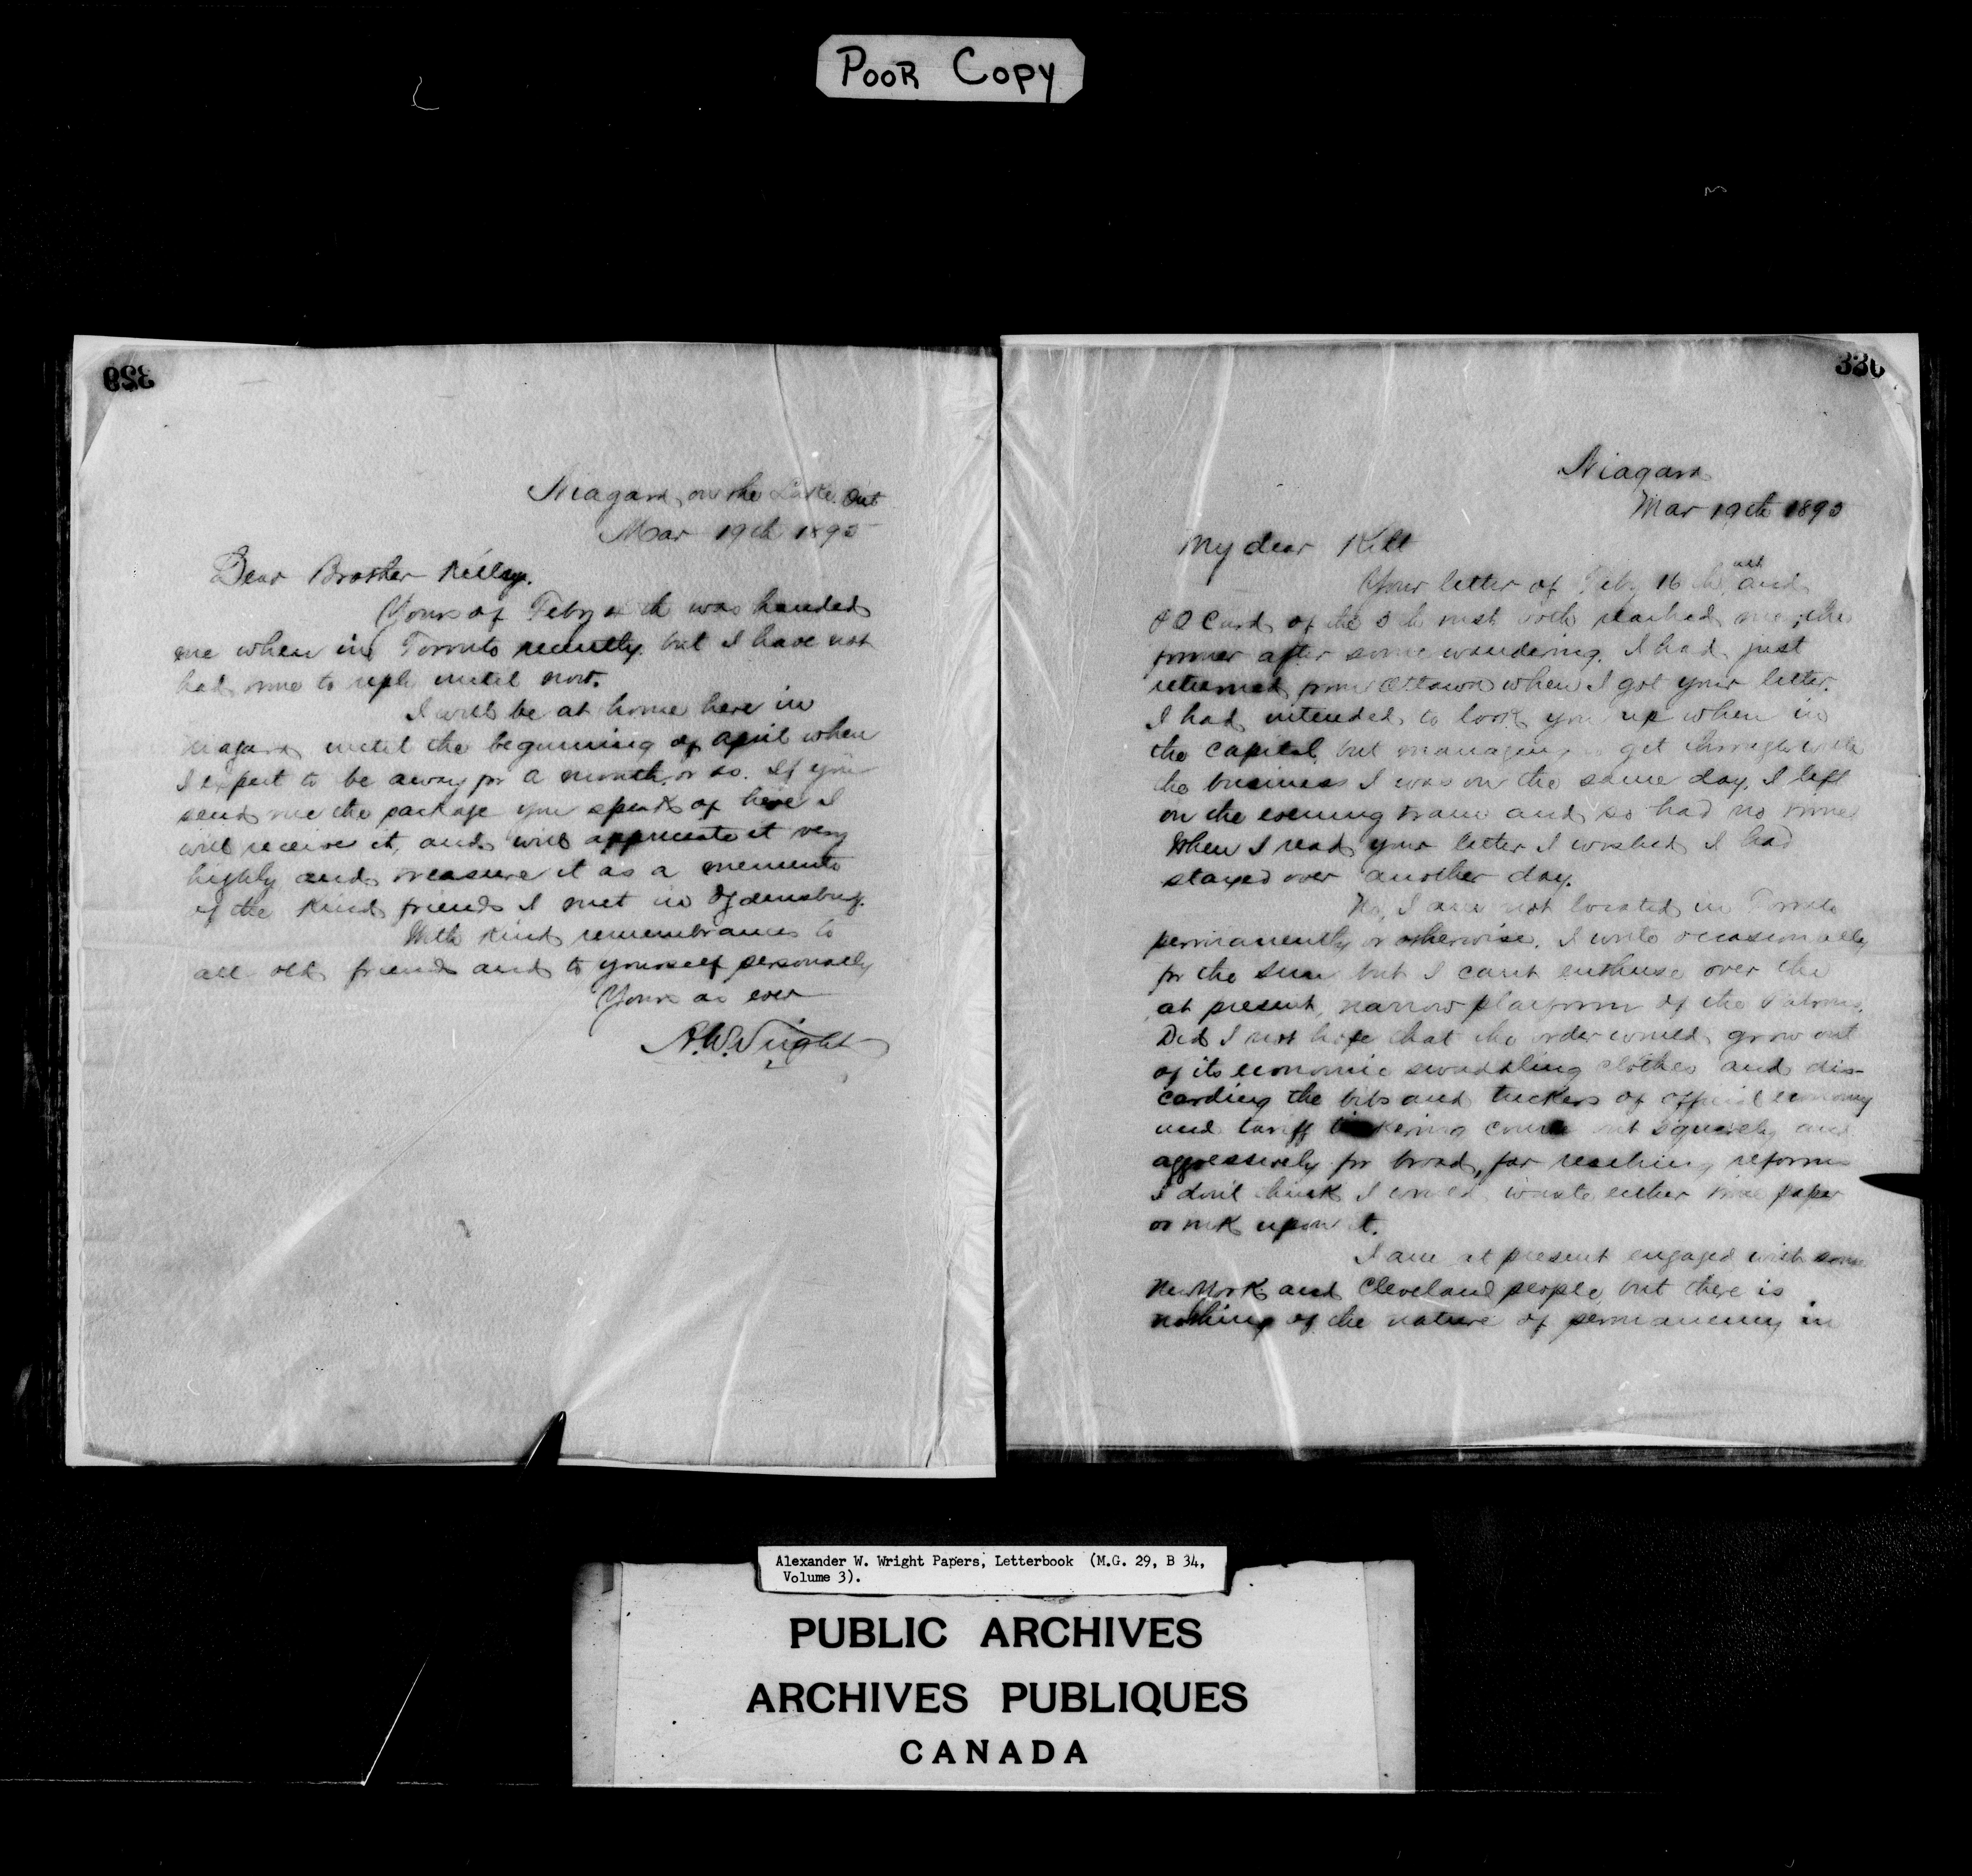 POOR COPY
329
Niagara on the Lake. Ont
Mar 19th 1895
Dear Brother Kelly.
Yours of Feby th was handed
me when in Toronto recently. but I have not
had time to reply until now.
I will be at home here in
Niagara until the beginning of april when
I expect to be away for a month or so. If you
send me the package you speak of here I
will receive it, and will appreciate it very
highly and treasure it as a memento
of the kind friends I met in Ogdensburg.
With kind remembrances to
all old friends and to yourself personally
Yours as ever
A.W. Wright
330
Niagara
Mar 19th 1895
My dear Kilt
Your letter of Feby 16th and
P O Card of the 5th inst both reached me; the
former after some wandering. I had just
returned from Ottawa when I got your letter.
I had intended to look you up when in
the Capital, but managing to get through with
the business I was on the same day, I left
on the evening train and so had no time
When I read your letter I wished I had
stayed over another day.
No, I am not located in Toronto
permanently or otherwise. I write occasionally
for the Sun but I cant enthuse over the
at present, narrow platform of the Patrons.
Did I not hope that the order would grow out
of its economic swaddling clothes and dis-
carding the bibs and tuckers of official economy
and tariff tinkering come out squarely and
aggressively for broad, far reaching reforms
I don't think I would waste either time paper
or ink upon it.
I am at present engaged with some
New York and Cleveland people, but there is
nothing of the nature of permanency in
Alexander W. Wright Papers, Letterbook (M.G. 29, B 34,
Volume 3).
PUBLIC ARCHIVES
ARCHIVES PUBLIQUES
CANADA